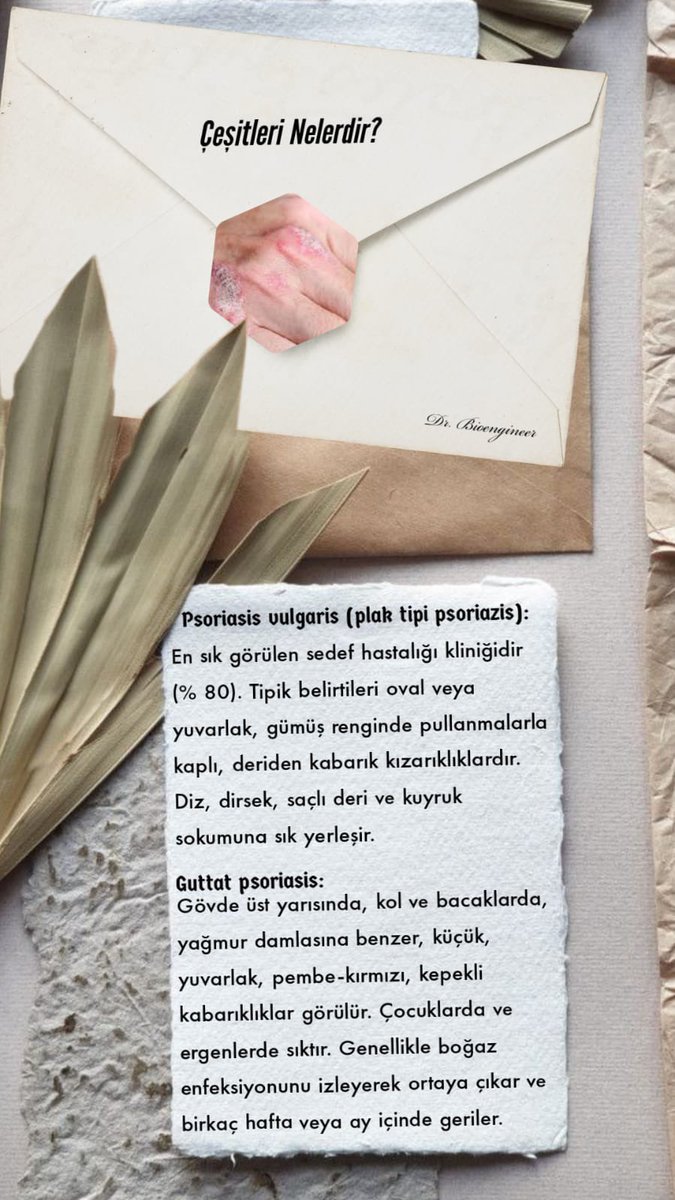 Çeşitleri Nelerdir?
Dr. Bioengineer
Psoriasis vulgaris (plak tipi psoriazis):
En sık görülen sedef hastalığı kliniğidir
(% 80). Tipik belirtileri oval veya
yuvarlak, gümüş renginde pullanmalarla
kaplı, deriden kabarık kızarıklıklardır.
Diz, dirsek, saçlı deri ve kuyruk
sokumuna sık yerleşir.
Guttat psoriasis:
Gövde üst yarısında, kol ve bacaklarda,
yağmur damlasına benzer, küçük,
yuvarlak, pembe-kırmızı, kepekli
kabarıklıklar görülür. Çocuklarda ve
ergenlerde sıktır. Genellikle boğaz
enfeksiyonunu izleyerek ortaya çıkar ve
birkaç hafta veya ay içinde geriler.